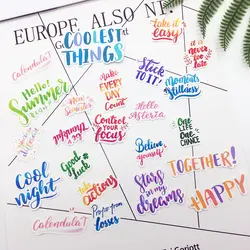 EUROPE ALSO NI
take it
easy
CalendulaT
COOLEST
THINGS
it is
never
too
late
Hello
Summer
make
EVERY
DAY
Count
STICK
TO IT!
Moments
Stillness
Hello
Control
your
FOCUS
ONE
LIFE
ONE
CHANCE
Good
luck
Believe
yourself
cool
night
take
action
Stars
in my
dreams
TOGETHER!
HAPPY
CalendulaT
Profit from
losses